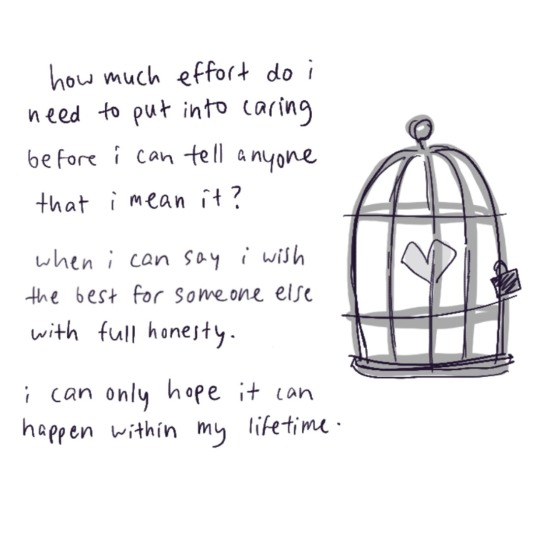 how much effort do i
need to put into caring
before i can tell anyone
that i mean it?
when i can say i wish
the best for someone else
with full honesty.
i can only hope it can
happen within my lifetime.